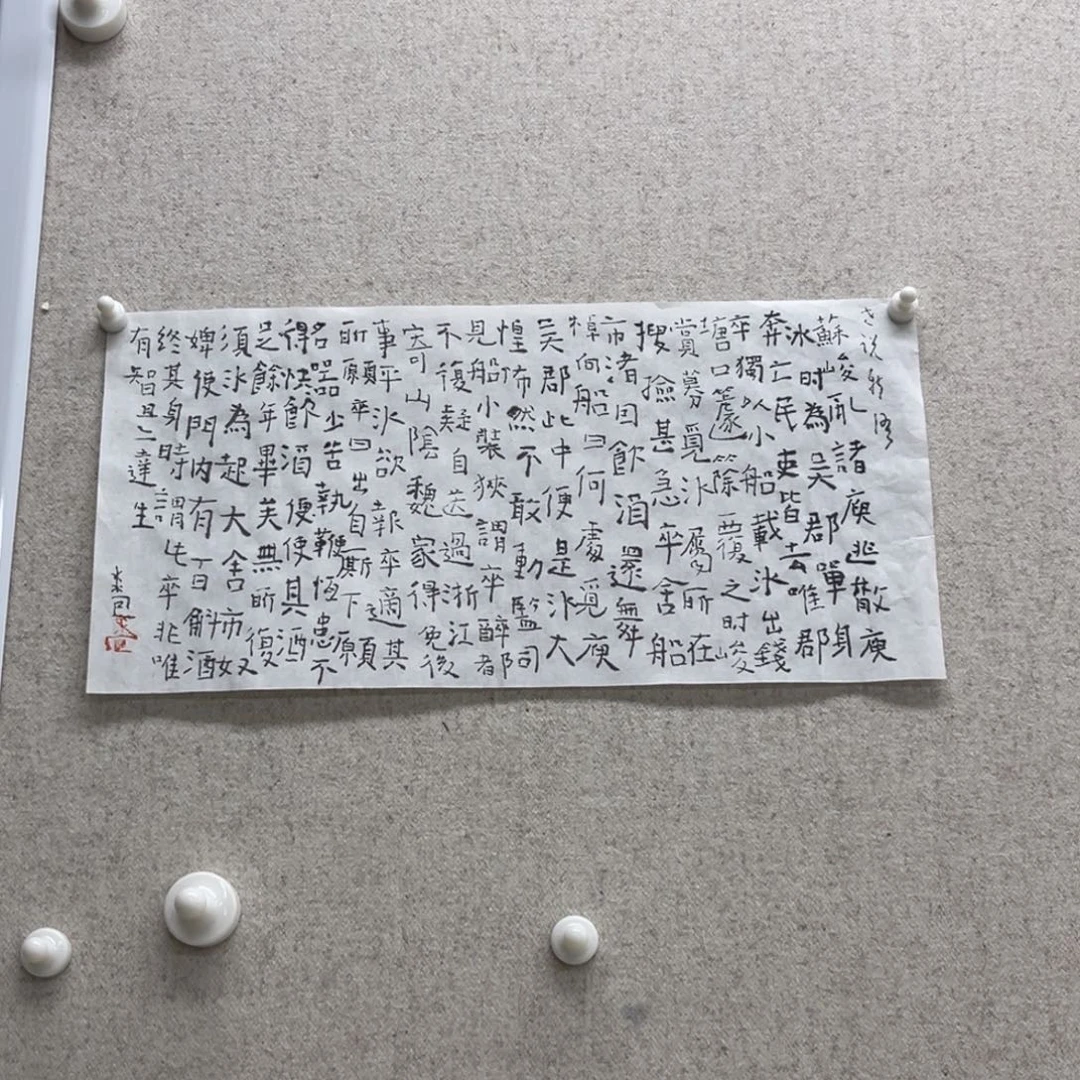 世说新语
蘇峻亂諸庾逃散庾
冰时為吳郡單身
奔亡民吏皆去唯郡
卒獨以小船載冰出錢
塘口籧篨覆之时峻
賞募覓冰屬所在
搜撿甚急卒舍船
市渚因飲酒還舞
棹向船曰何處覓庾
吳郡此中便是冰大
惶怖然不敢動監司
見船小裝狹謂卒醉都
不復疑自送過浙江
寄山陰魏家得免後
事平冰欲報卒適其
所願卒曰出自廝下願
名器少苦執鞭恆患不
得快飲酒便使其酒
足餘年畢矣無所復
須冰為起大舍市奴
婢使門內有百斛酒
終其身時謂此卒非唯
有智且亦達生